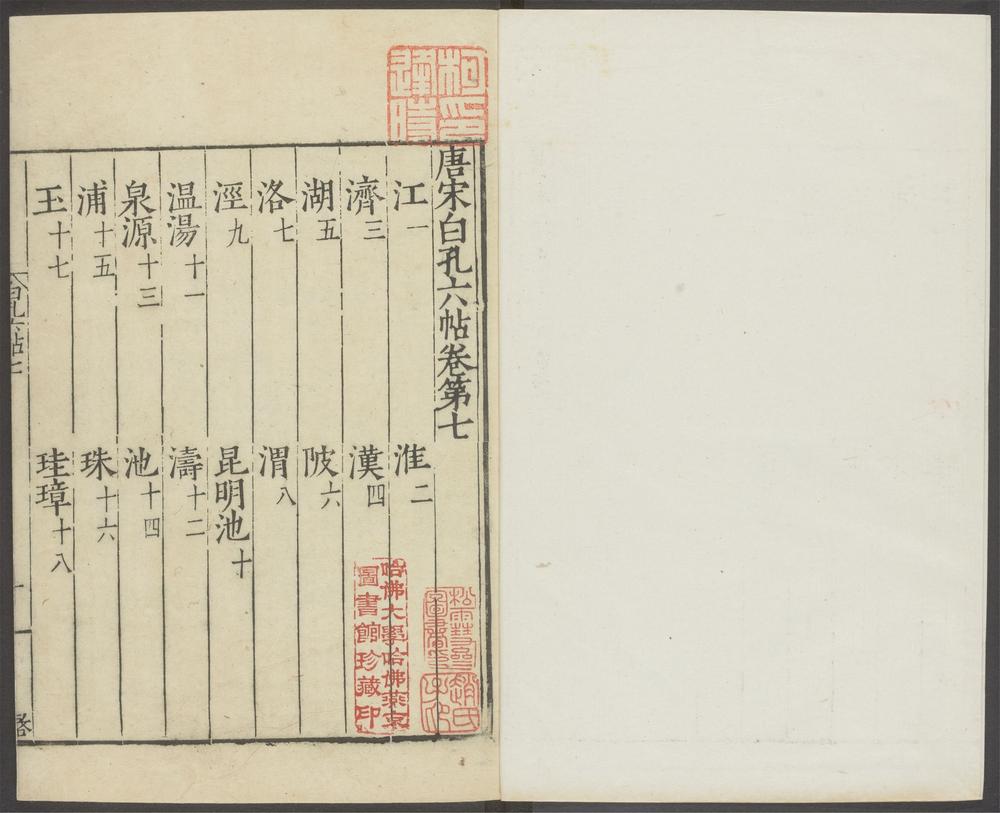 唐宋白孔六帖卷第七
江一　淮二
濟三　漢四
湖五　陂六
洛七　渭八
涇九　昆明池十
温湯十一　濤十二
泉源十三　池十四
浦十五　珠十六
玉十七　珪璋十八
哈佛大學哈佛燕京
圖書館珍藏印